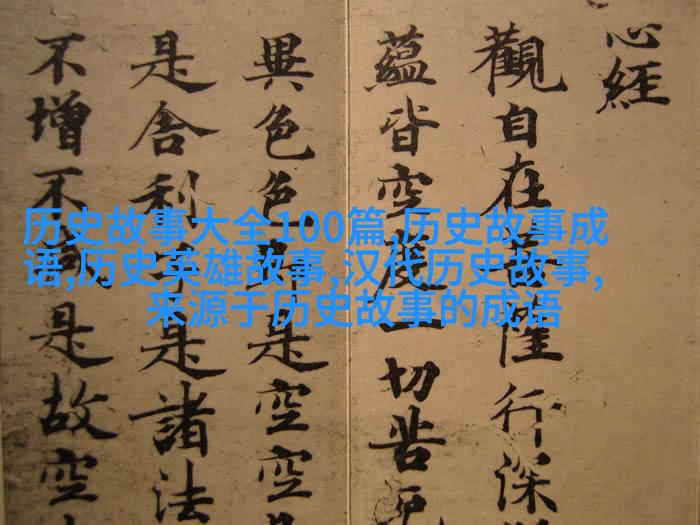 历史故事大全100篇,历史故事成
语,历史英雄故事,汉代历史故事,
来源于历史故事的成语
心經
觀自在行深
蘊皆空度一切苦
異色色是空空
是舍利是諸法
不增不是故空